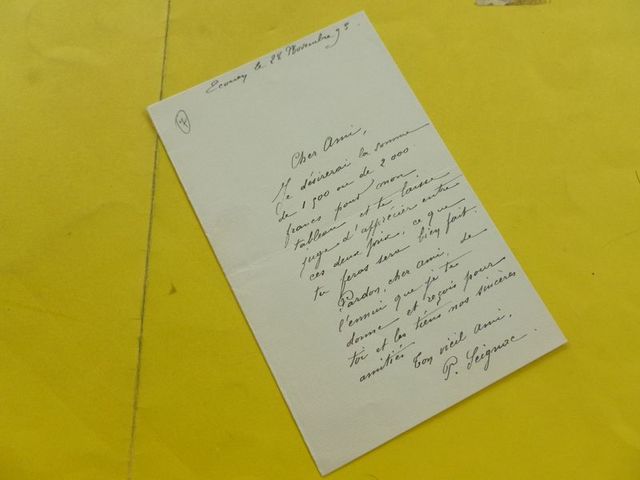 Ecouen le 28 Novembre 93
Cher Ami,
Je désirerai la somme
de 1500 ou de 2000
francs pour mon
tableau, et te laisse
juge d'apprécier entre
ces deux prix, ce que
tu feras sera bien fait.
Pardon, cher ami, de
l'ennui que je te
donne et reçois pour
toi et les tiens nos sincères
amitiés
Ton vieil ami,
P. Seignac